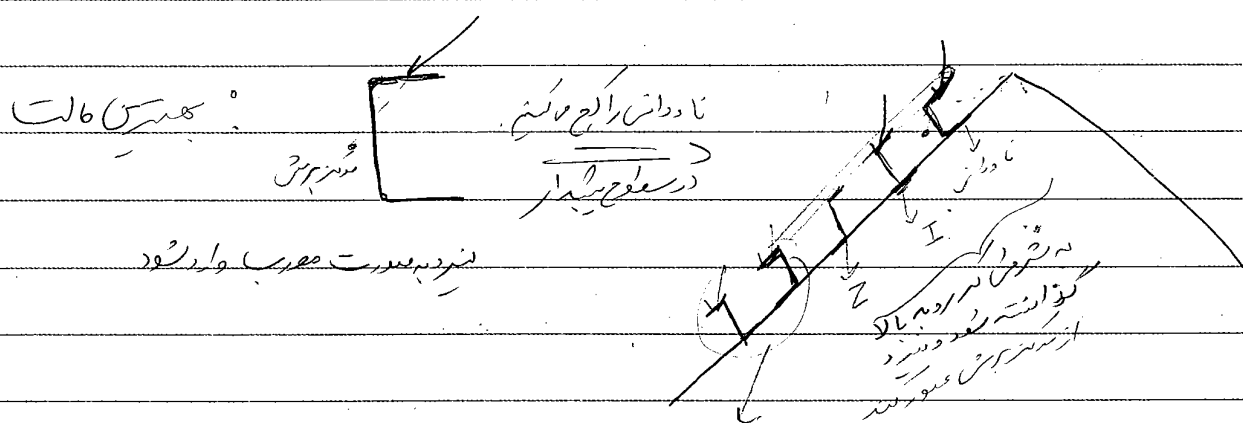 بهترین حالت :
مرکز برش
ناودانی را کج می‌کنیم.
در سطوح شیبدار
نیرو به صورت مورب وارد شود
ناودانی
I
Z
به شرطی که رو به بالا
گذاشته شود و نیرو
از مرکز برش عبور کند